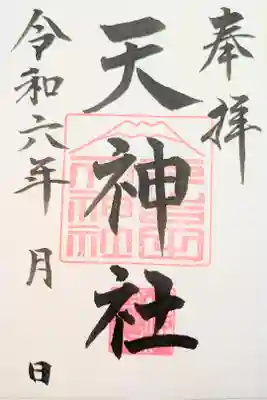 奉拝
天神社
令和六年 月 日